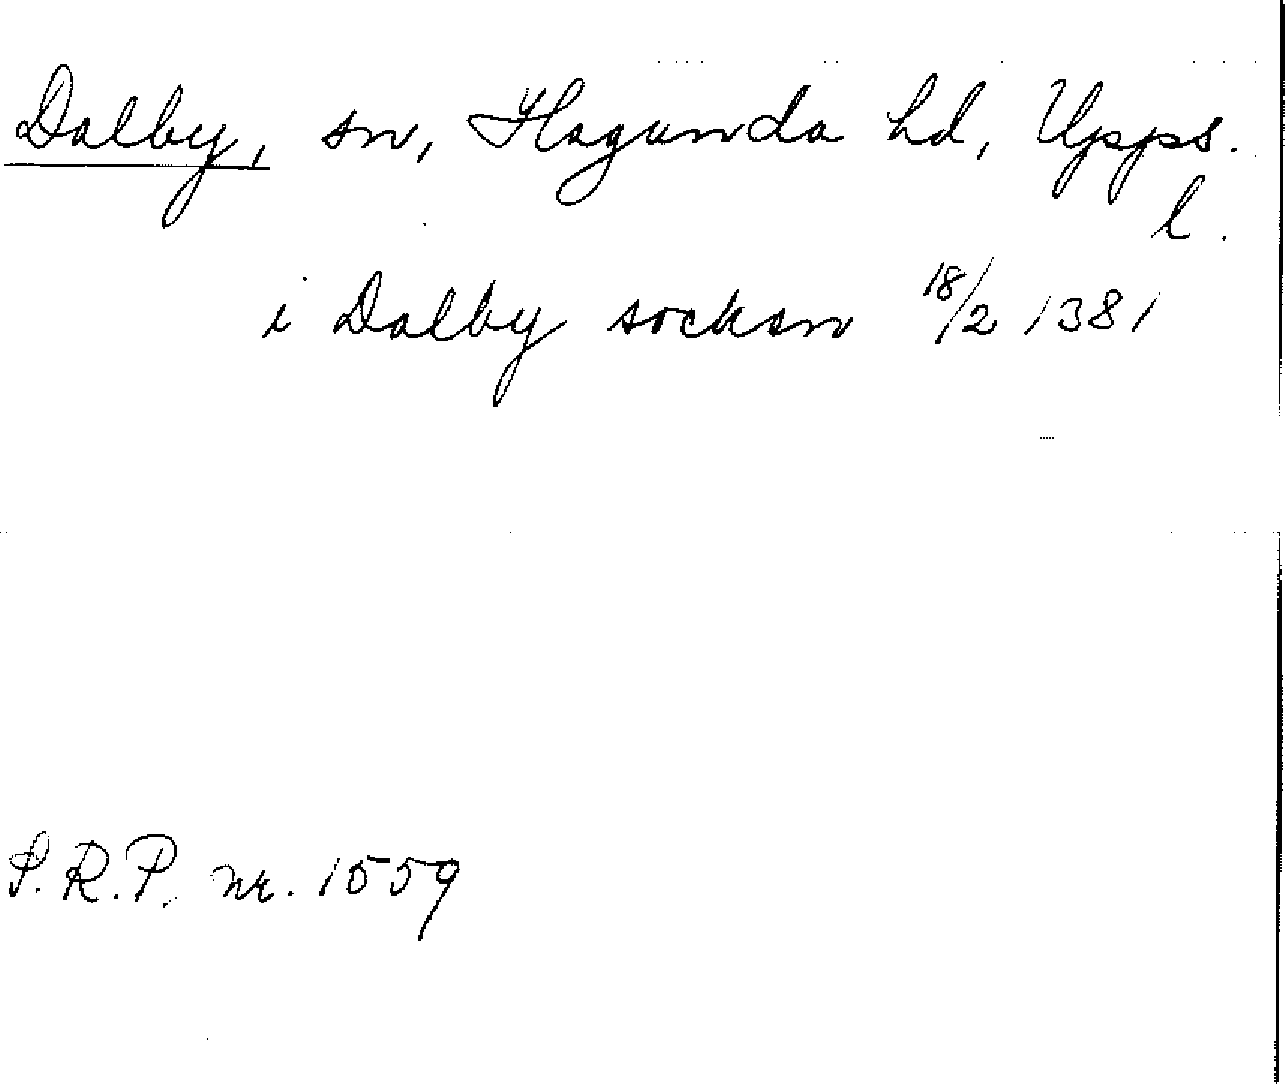 Dalby, sn, Hagunda hd, Upps.
l.
i Dalby sockan 18/2 1381
S.R.P. nr. 1559